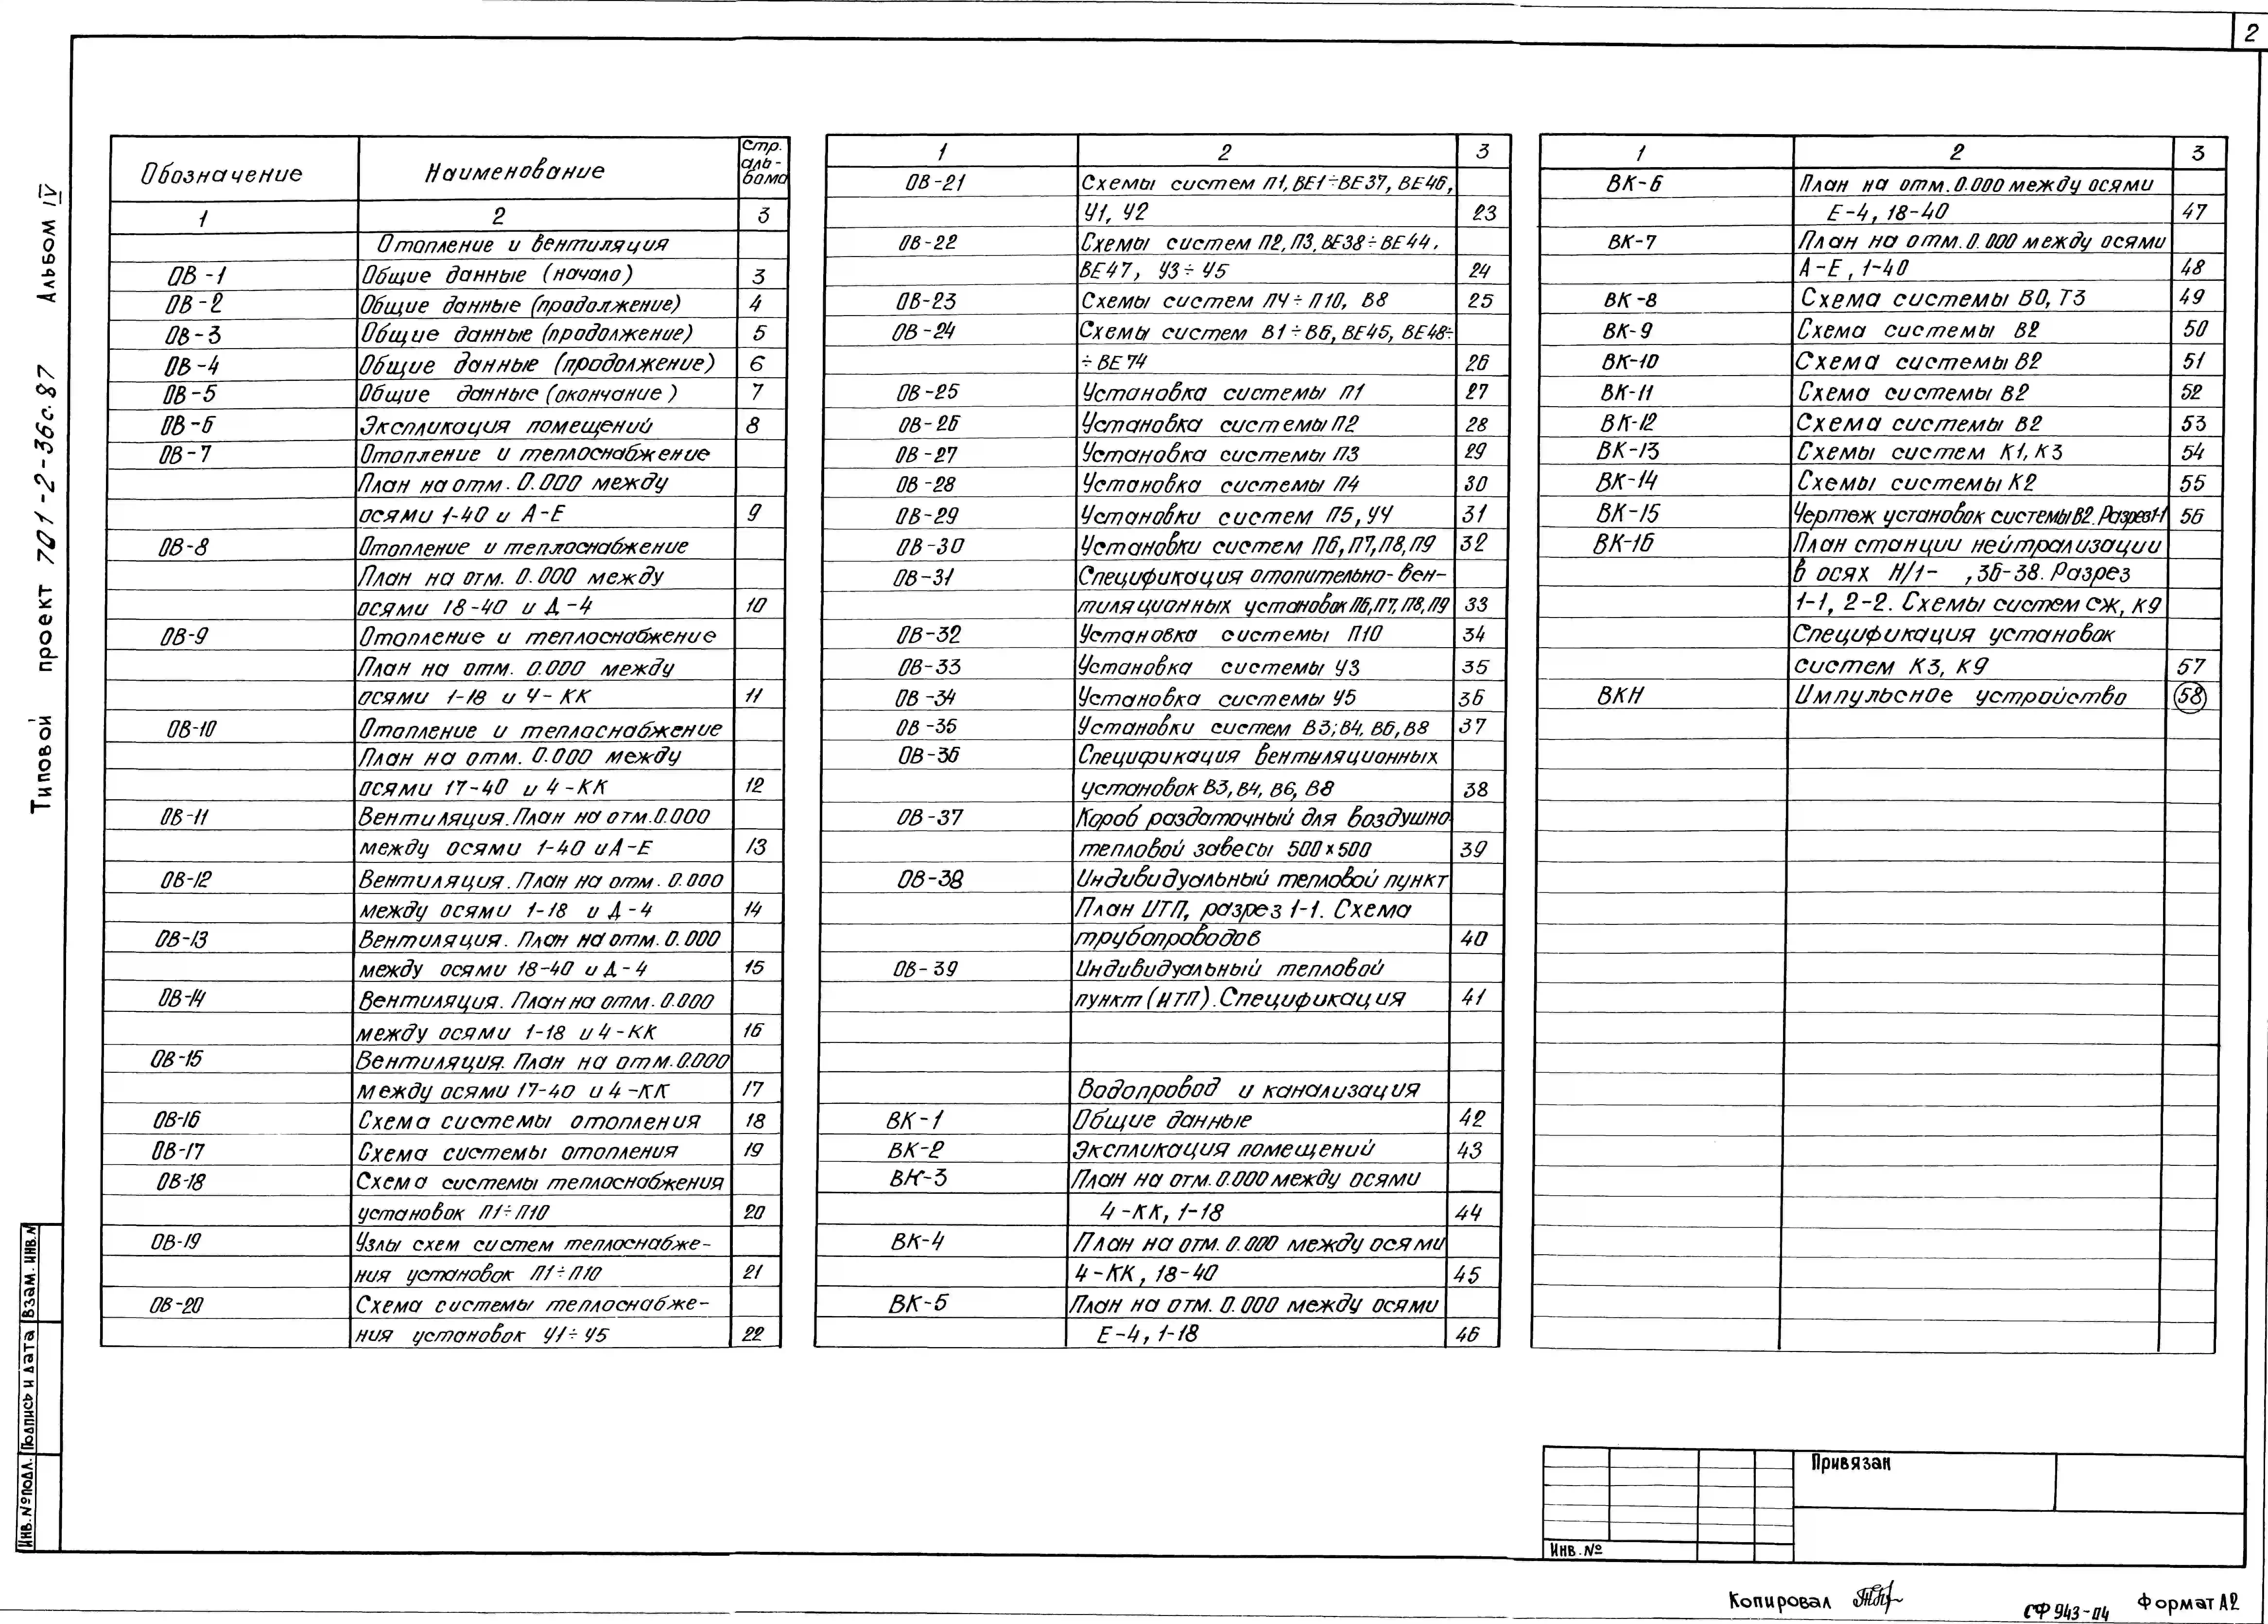 2
Типовой проект 701-2-36с.87 Альбом IV
Обозначение Наименование Стр. аль-бома
1 2 3
Отопление и вентиляция
ОВ-1 Общие данные (начало) 3
ОВ-2 Общие данные (продолжение) 4
ОВ-3 Общие данные (продолжение) 5
ОВ-4 Общие данные (продолжение) 6
ОВ-5 Общие данные (окончание) 7
ОВ-6 Экспликация помещений 8
ОВ-7 Отопление и теплоснабжение
План на отм. 0.000 между
осями 1-40 и А-Е 9
ОВ-8 Отопление и теплоснабжение
План на отм. 0.000 между
осями 18-40 и Д-4 10
ОВ-9 Отопление и теплоснабжение
План на отм. 0.000 между
осями 1-18 и Ч-КК 11
ОВ-10 Отопление и теплоснабжение
План на отм. 0.000 между
осями 17-40 и 4-КК 12
ОВ-11 Вентиляция. План на отм. 0.000
между осями 1-40 и А-Е 13
ОВ-12 Вентиляция. План на отм. 0.000
между осями 1-18 и Д-4 14
ОВ-13 Вентиляция. План на отм. 0.000
между осями 18-40 и Д-4 15
ОВ-14 Вентиляция. План на отм. 0.000
между осями 1-18 и 4-КК 16
ОВ-15 Вентиляция. План на отм. 0.000
между осями 17-40 и 4-КК 17
ОВ-16 Схема системы отопления 18
ОВ-17 Схема системы отопления 19
ОВ-18 Схема системы теплоснабжения
установок П1÷П10 20
ОВ-19 Узлы схем систем теплоснабже-
ния установок П1÷П10 21
ОВ-20 Схема системы теплоснабже-
ния установок У1÷У5 22
1 2 3
ОВ-21 Схемы систем П1, ВЕ1÷ВЕ37, ВЕ46,
У1, У2 23
ОВ-22 Схемы систем П2, П3, ВЕ38÷ВЕ44,
ВЕ47, У3÷У5 24
ОВ-23 Схемы систем П4÷П10, В8 25
ОВ-24 Схемы систем В1÷В6, ВЕ45, ВЕ48÷
÷ВЕ74 26
ОВ-25 Установка системы П1 27
ОВ-26 Установка системы П2 28
ОВ-27 Установка системы П3 29
ОВ-28 Установка системы П4 30
ОВ-29 Установки систем П5, У4 31
ОВ-30 Установки систем П6, П7, П8, П9 32
ОВ-31 Спецификация отопительно-вен-
тиляционных установок П6, П7, П8, П9 33
ОВ-32 Установка системы П10 34
ОВ-33 Установка системы У3 35
ОВ-34 Установка системы У5 36
ОВ-35 Установки систем В3; В4, В6, В8 37
ОВ-36 Спецификация вентиляционных
установок В3, В4, В6, В8 38
ОВ-37 Короб раздаточный для воздушно-
тепловой завесы 500х500 39
ОВ-38 Индивидуальный тепловой пункт
План ИТП, разрез 1-1. Схема
трубопроводов 40
ОВ-39 Индивидуальный тепловой
пункт (ИТП). Спецификация 41
Водопровод и канализация
ВК-1 Общие данные 42
ВК-2 Экспликация помещений 43
ВК-3 План на отм. 0.000 между осями
4-КК, 1-18 44
ВК-4 План на отм. 0.000 между осями
4-КК, 18-40 45
ВК-5 План на отм. 0.000 между осями
Е-4, 1-18 46
1 2 3
ВК-6 План на отм. 0.000 между осями
Е-4, 18-40 47
ВК-7 План на отм. 0.000 между осями
А-Е, 1-40 48
ВК-8 Схема системы В0, Т3 49
ВК-9 Схема системы В2 50
ВК-10 Схема системы В2 51
ВК-11 Схема системы В2 52
ВК-12 Схема системы В2 53
ВК-13 Схемы систем К1, К3 54
ВК-14 Схемы системы К2 55
ВК-15 Чертеж установок системы В2. Разрез 1-1 56
ВК-16 План станции нейтрализации
в осях И/1- ,36-38. Разрез
1-1, 2-2. Схемы систем сж, К9
Спецификация установок
систем К3, К9 57
ВКН Импульсное устройство 58
Инв.№подл. Подпись и дата Взам.инв.№
Привязан
Инв.№
Копировал СФ 943-04 Формат А2